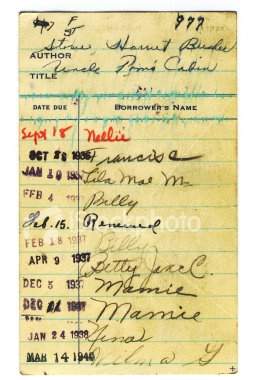 F
ST
977
Stowe, Harriet Beecher
AUTHOR
TITLE Uncle Tom's Cabin
DATE DUE BORROWER'S NAME
Sept 18 Nellie
OCT 28 1935 Francis
JAN 10 Lila Mae
FEB 4 Billy
Feb. 15. Renewed
FEB 18 1937 Billy
APR 9 1937 Betty Jane C.
DEC 5 1937 Mamie
DEC 1937 Mamie
JAN 24 1938 Tina
MAR 14 1940 Wilma G